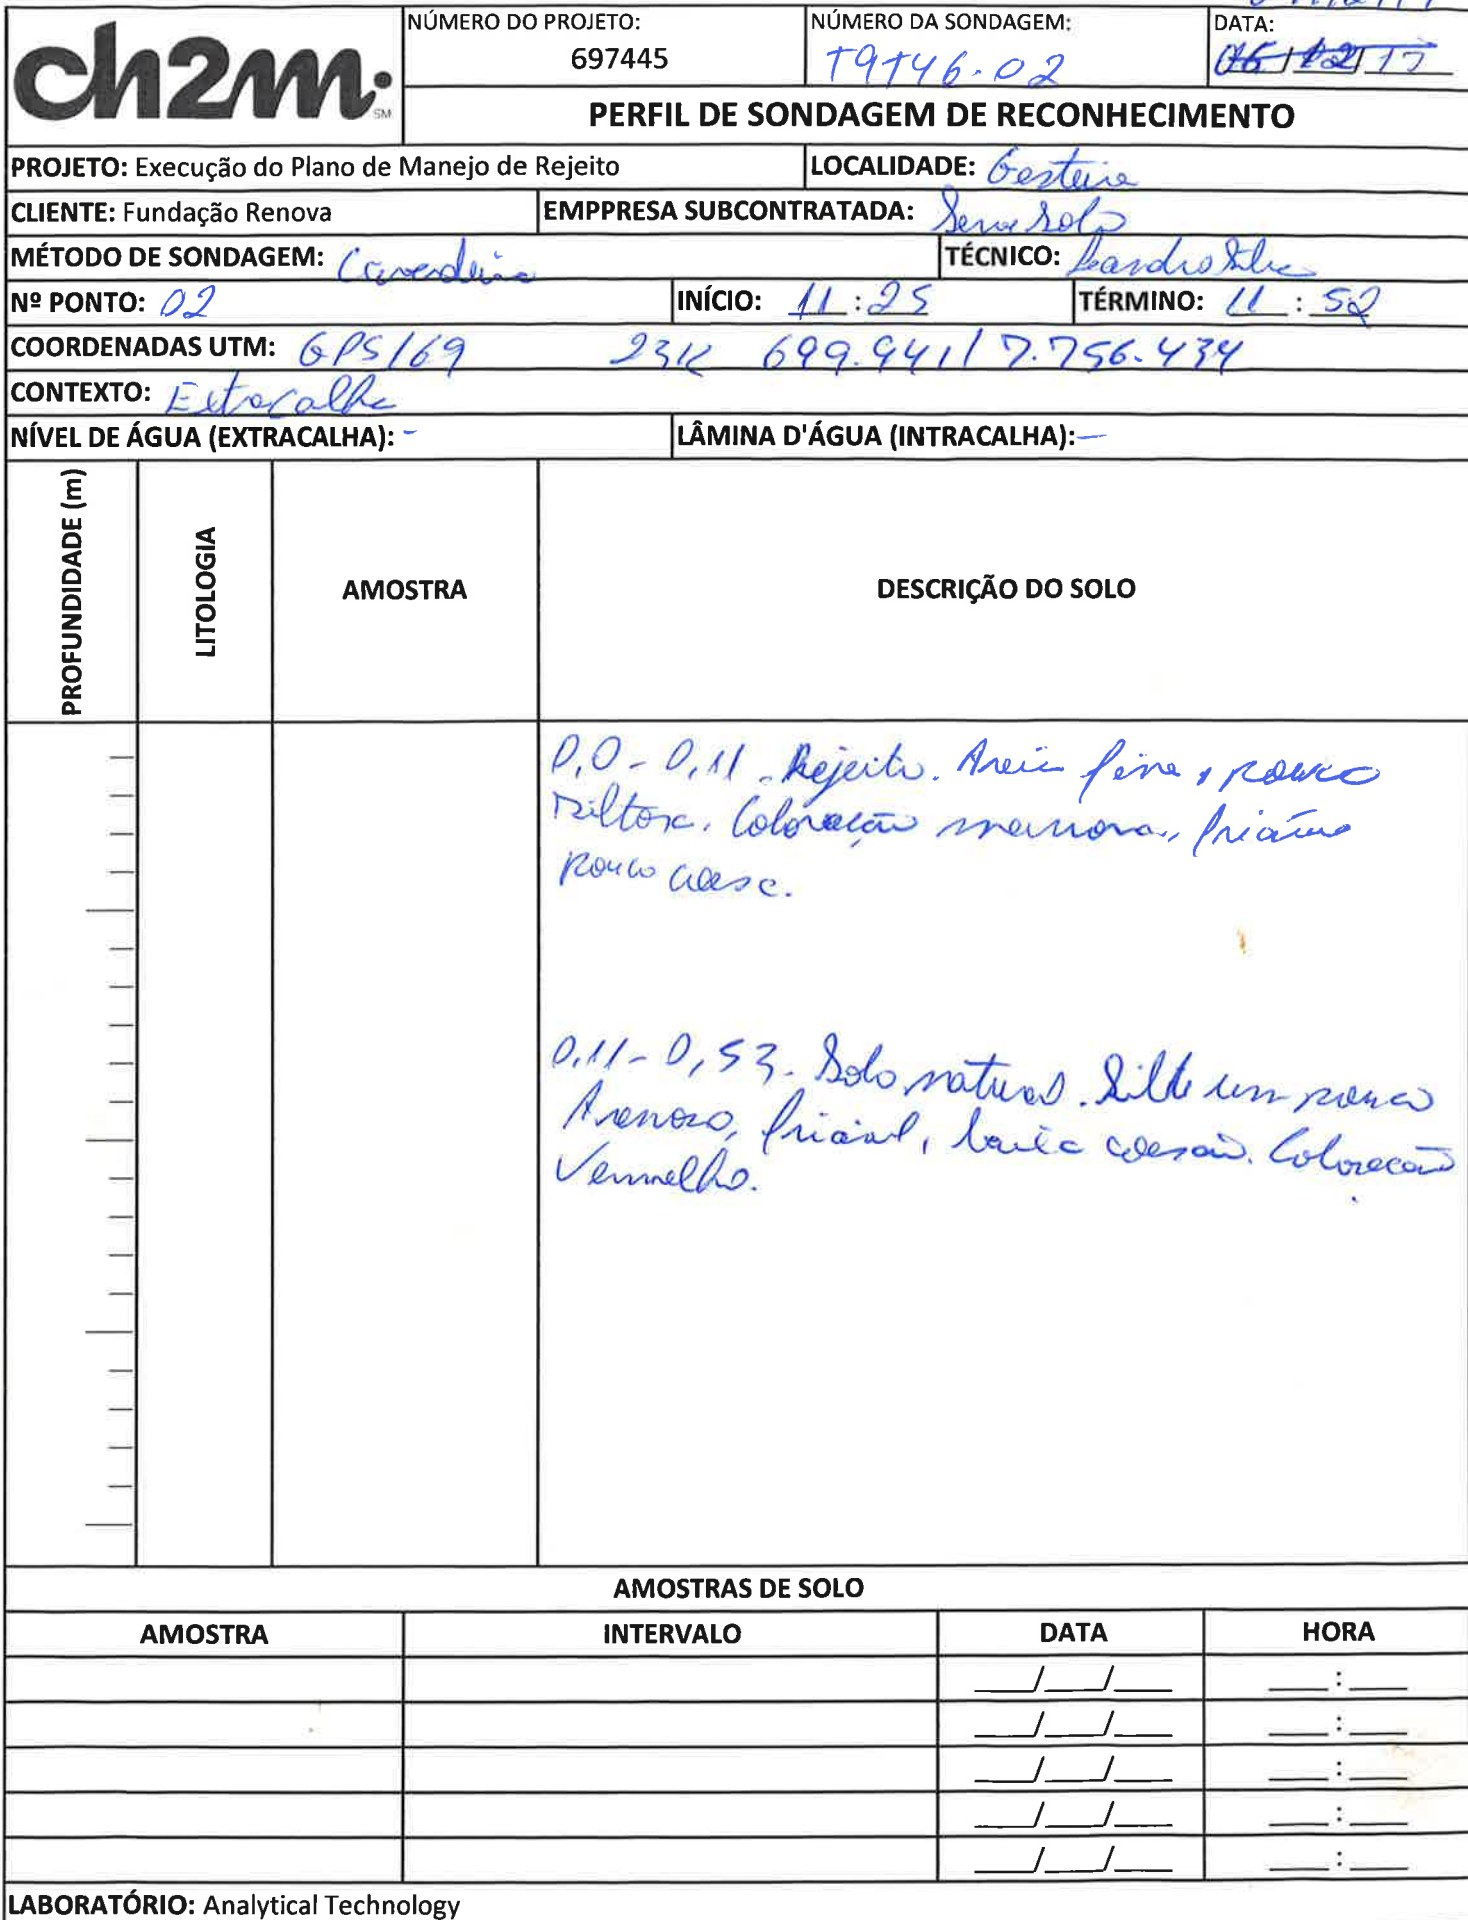 ch2m.
SM
NÚMERO DO PROJETO:
697445
NÚMERO DA SONDAGEM:
T9T46-02
DATA:
06/02/17
PERFIL DE SONDAGEM DE RECONHECIMENTO
PROJETO: Execução do Plano de Manejo de Rejeito
LOCALIDADE: Gesteira
CLIENTE: Fundação Renova
EMPPRESA SUBCONTRATADA: Serve Solo
MÉTODO DE SONDAGEM: Cavadeira
TÉCNICO: Leandro Silva
Nº PONTO: 02
INÍCIO: 11:25
TÉRMINO: 11:52
COORDENADAS UTM: GPS/69 23K 699.941/7.756.434
CONTEXTO: Extracalha
NÍVEL DE ÁGUA (EXTRACALHA): -
LÂMINA D'ÁGUA (INTRACALHA): -
PROFUNDIDADE (m)
LITOLOGIA
AMOSTRA
DESCRIÇÃO DO SOLO
0,0 - 0,11 - Rejeito. Areia fina, pouco
siltosa. Coloração marrom, friável
pouco coesa.
0,11 - 0,53 - Solo natural. Silte um pouco
Arenoso, friável, baixa coesão. Coloração
Vermelho.
AMOSTRAS DE SOLO
AMOSTRA INTERVALO DATA HORA
___/___/___ ___:___
___/___/___ ___:___
___/___/___ ___:___
___/___/___ ___:___
___/___/___ ___:___
LABORATÓRIO: Analytical Technology